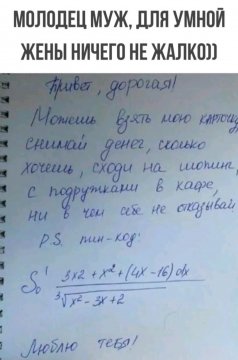 МОЛОДЕЦ МУЖ, ДЛЯ УМНОЙ
ЖЕНЫ НИЧЕГО НЕ ЖАЛКО))
Привет, дорогая!
Можешь взять мою карточку
снимай денег, сколько
хочешь, сходи на шопинг,
с подружками в кафе,
ни в чем себе не отказывай
P.S. пин-код:
∫₀¹ (3x2 + x² + (4x - 16) dx) / ∛(x² - 3x + 2)
Люблю тебя!